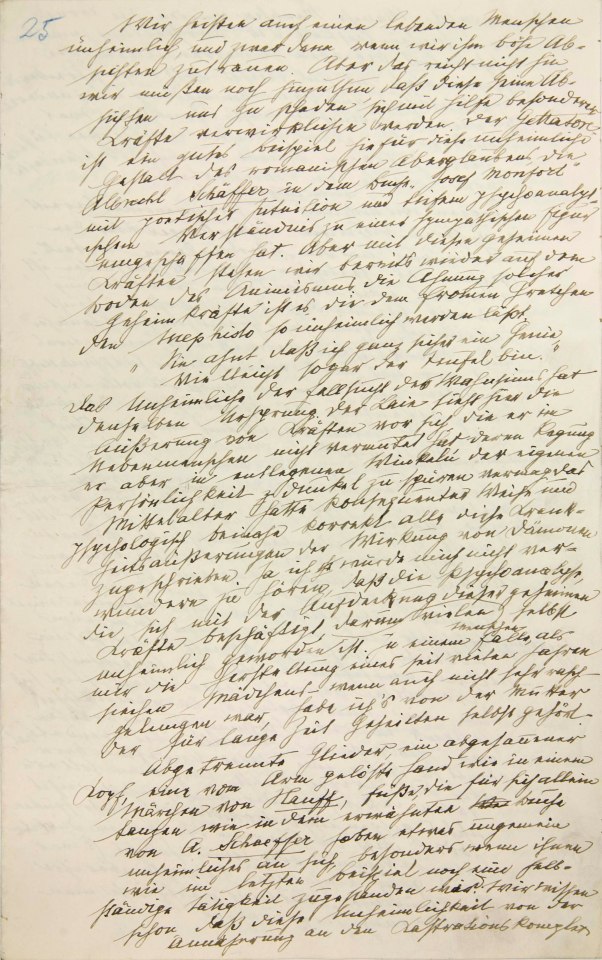 25
Wir heißen auch einen lebenden Menschen
unheimlich, und zwar dann, wenn wir ihm böse Ab-
sichten zutrauen. Aber das reicht nicht hin
wir müßen noch hinzuthun daß diese seine Ab-
sichten uns zu schaden sich mit Hilfe besonderer
Kräfte verwirklichen werden. Der Gettatore
ist ein gutes Beispiel hiefür diese unheimliche
Gestalt des romanischen Aberglaubens die
Albrecht Schäffer in dem Buche Josef Montfort
mit poetischer Intuition und tiefem psychoanalyt-
ischen Verständnis zu einer sympathischen Figur
umgeschaffen hat. Aber mit diesen geheimen
Kräften stehen wir bereits wieder auf dem
Boden des Animismus. Die Ahnung solcher
Geheimkräfte ist es die dem frommen Gretchen
den Mephisto so unheimlich werden läßt.
" Sie ahnt daß ich ganz sicher ein Genie
Vielleicht sogar der Teufel bin. "
Das Unheimliche der Fallsucht des Wahnsinns hat
denselben Ursprung. Der Laie sieht hier die
Äußerung von Kräften vor sich die er im
Nebenmenschen nicht vermutet hat deren Regung
er aber in entlegenen Winkeln der eigenen
Persönlichkeit dunkel zu spüren vermag. Das
Mittelalter hatte konsequenter Weise und
psychologisch beinahe korrekt alle diese Krank-
heitsäußerungen der Wirkung von Dämonen
zugeschrieben. Ja ich würde mich nicht ver-
wundern zu hören, daß die Psychoanalyse,
die sich mit der Aufdeckung dieser geheimen
Kräfte beschäftigt, darum vielen selbst
unheimlich geworden ist. In einem Falle, als
mir die Herstellung eines seit vielen Jahren
siechen Mädchens – wenn auch nicht sehr rasch –
gelungen war, habe ich's von der Mutter
der für lange Zeit Geheilten selbst gehört.
Abgetrennte Glieder, ein abgehauener
Kopf, eine vom Arm gelöste Hand wie in einem
Märchen von Hauff, Füße, die für sich allein
tanzen wie in dem erwähnten Buche
von A. Schaeffer haben etwas ungemein
unheimliches an sich, besonders wenn ihnen
wie im letzten Beispiel noch eine selb-
ständige Tätigkeit zugestanden wird. Wir wissen
schon daß diese Unheimlichkeit von der
Annäherung an den Kastrationskomplex